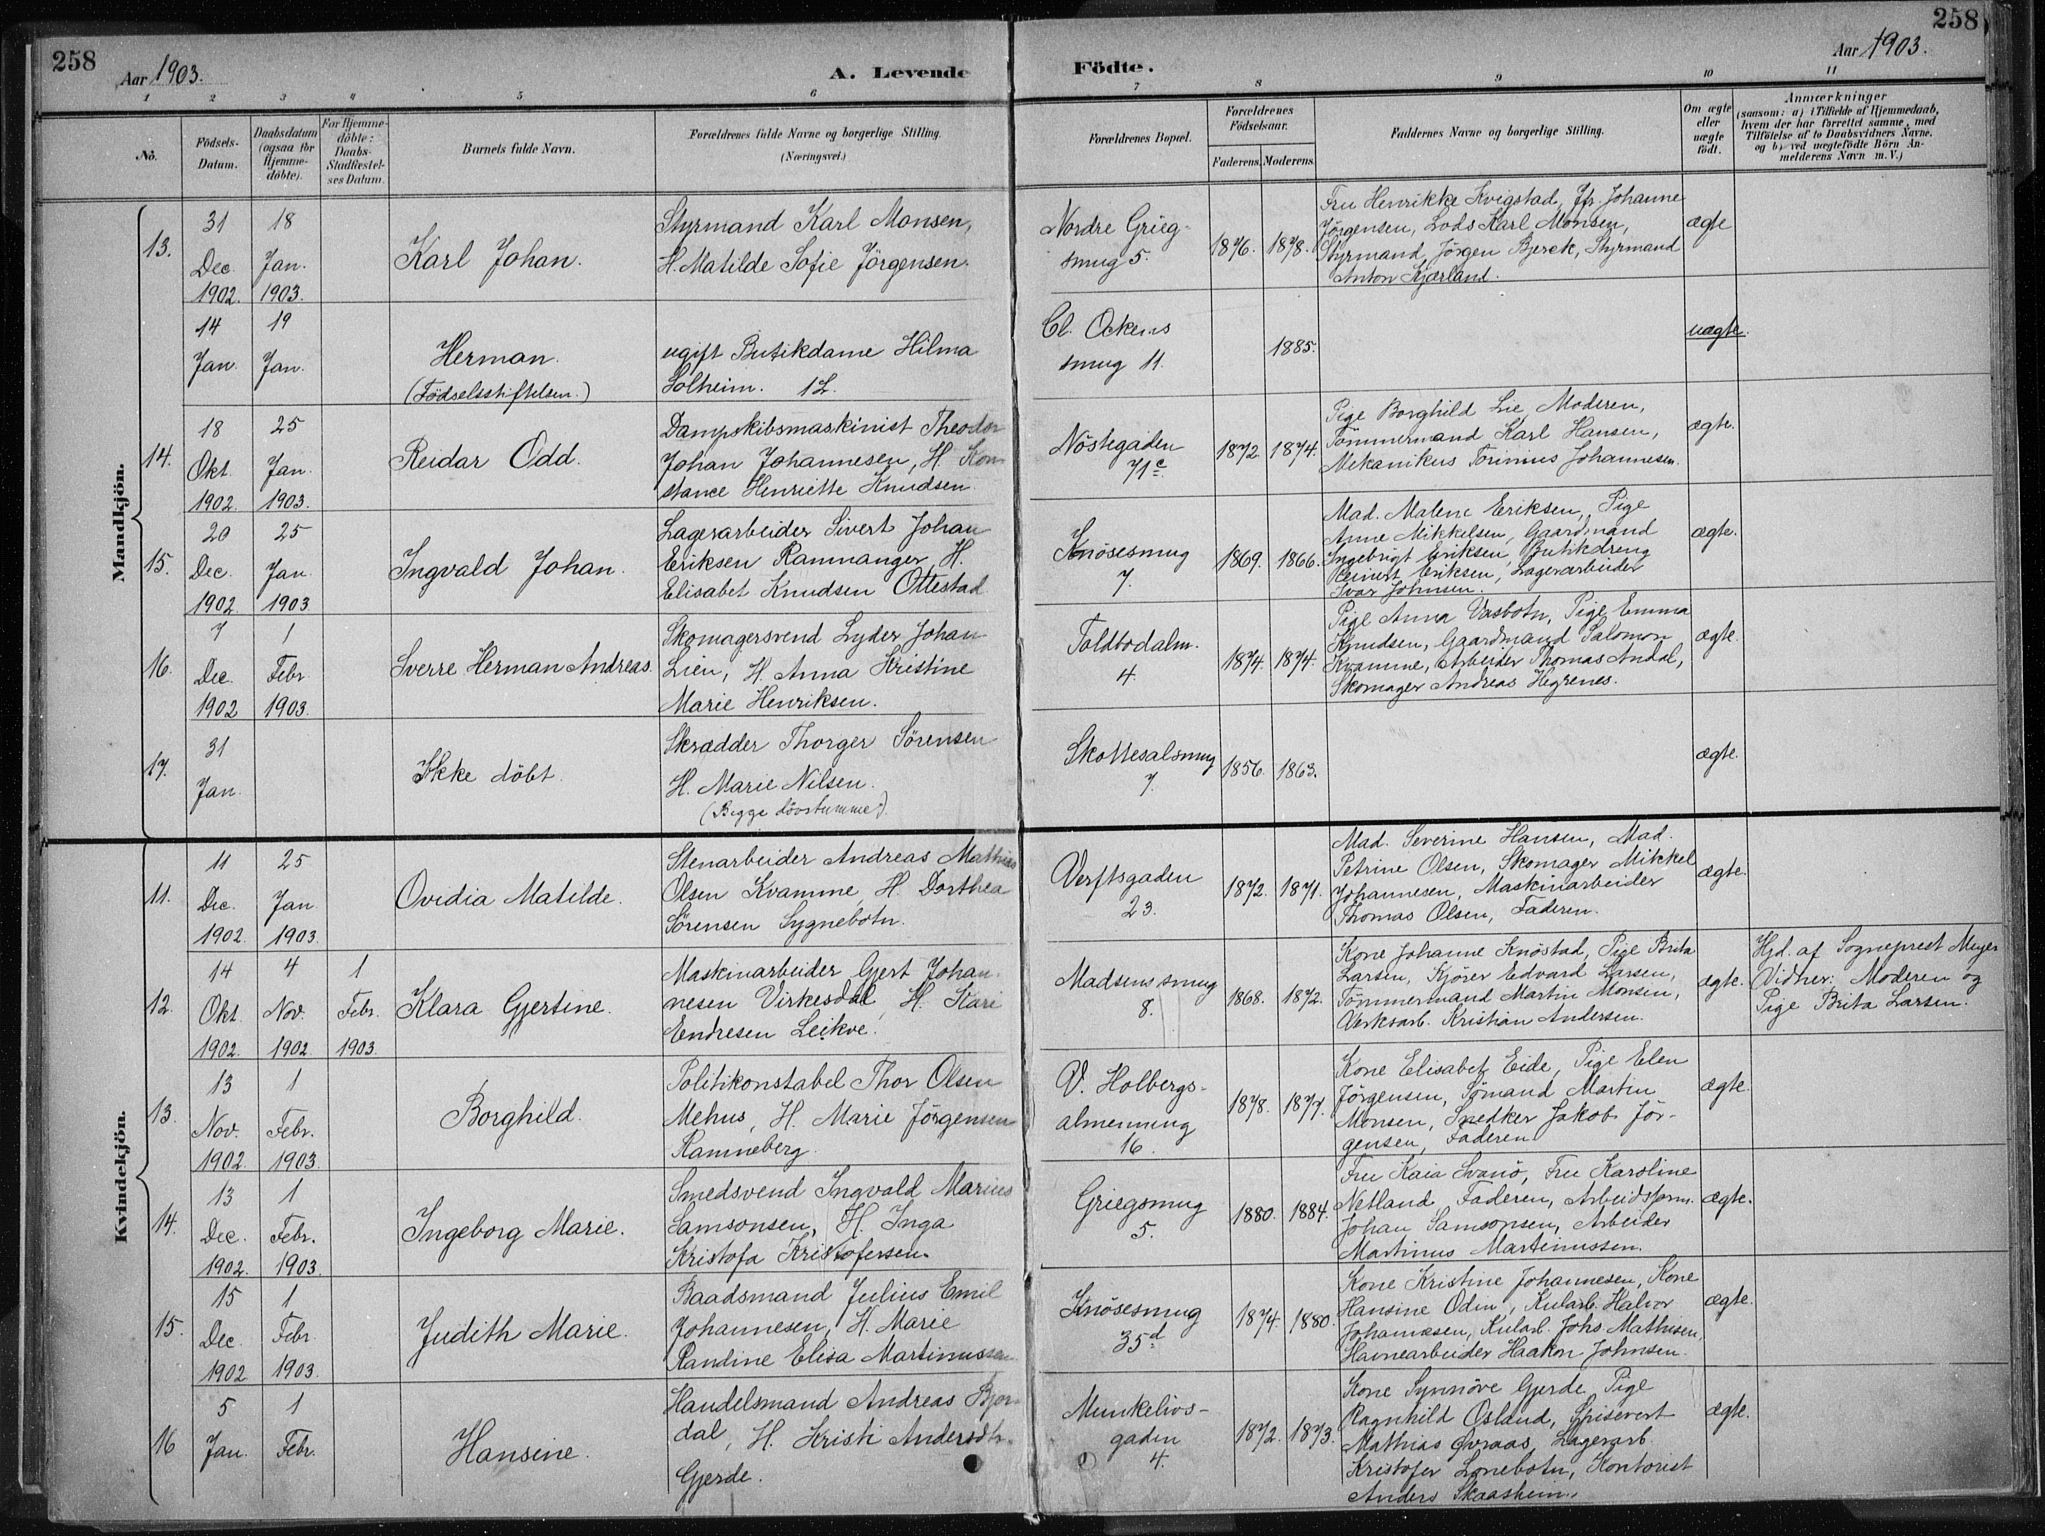 258
Aar 1903.
A. Levende Födte.
258
Aar 1903.
1 2 3 4 5 6 7 8 9 10 11
No.
Födsels-
Datum.
Daabsdatum
(ogsaa for
Hjemme-
döbte).
For Hjemme-
döbte:
Daabs-
Stadfæstel-
ses Datum.
Barnets fulde Navn.
Forældrenes fulde Navne og borgerlige Stilling.
(Næringsvei.)
Forældrenes Bopæl.
Forældrenes
Födselsaar.
Faderens. Moderens.
Faddernes Navne og borgerlige Stilling.
Om ægte
eller
uægte
födt.
Anmærkninger
(saasom: a) i Tilfælde af Hjemmedaab,
hvem der har forrettet samme, med
Tilföielse af to Daabsvidners Navne,
og b) ved uægtefödte Börn An-
melderens Navn m.V.)
Mandkjön.
13.
31
Dec.
1902.
18
Jan.
1903.
Karl Johan.
Styrmand Karl Monsen,
H. Matilde Sofie Jörgensen.
Nordre Grieg-
smug 5.
1876. 1878.
Fru Henrikke Kvigstad, Jfr. Johanne
Jörgensen, Lods Karl Monsen,
Styrmand Jörgen Bjerck, Styrmand
Anton Kjærland.
ægte
14
Jan.
19
Jan.
Herman.
(Födselsstiftelsen.)
ugift Butikdame Hilma
Solheim. 1L.
Cl. Ockens
smug 11.
1885.
uægte.
14.
18
Okt.
1902.
25
Jan.
1903.
Reidar Odd.
Dampskibsmaskinist Theodor
Johan Johannesen, H. Kon
stance Henriette Knudsen
Nöstegaden
71c.
1872. 1874.
Pige Borghild Lie, Moderen,
Tömmermand Karl Hansen,
Mekanikus Torinius Johannesen.
ægte.
15.
20
Dec.
1902
25
Jan.
1903
Ingvald Johan.
Lagerarbeider Sivert Johan
Eriksen Ramnanger, H.
Elisabet Knudsen Ottestad
Knösesmug
7.
1869. 1866.
Mad. Malene Eriksen, Pige
Anne Mikkelsen, Gaardmand
Ingebrigt Eriksen, Butikdreng
Reinert Eriksen, Lagerarbeider
Ivar Johnsen.
ægte.
16.
7
Dec.
1902
1
Febr.
1903.
Sverre Herman Andreas.
Skomagersvend Lyder Johan
Lien, H. Anna Kristine
Marie Henriksen.
Toldbodalm.
4.
1874. 1874.
Pige Anna Vasbotn, Pige Emma
Knudsen, Gaardmand Salomon
Kvamme, Arbeider Thomas Andal,
Skomager Andreas Hegrenes.
ægte.
17.
31
Jan.
Ikke döbt.
Skrædder Thorger Sörensen
H. Marie Nilsen.
(Begge dövstumme.)
Skottesalsmug
7.
1856. 1863.
ægte.
Kvindekjön.
11.
11
Dec.
1902.
25
Jan
1903.
Ovidia Matilde.
Stenarbeider Andreas Mathias
Olsen Kvamme, H. Dorthea
Sörensen Sygnebotn.
Verftsgaden
23.
1872. 1871.
Mad. Severine Hansen, Mad.
Petrine Olsen, Skomager Mikkel
Johannesen, Maskinarbeider
Thomas Olsen, Faderen.
ægte.
12.
14
Okt.
1902.
4
Nov.
1902
1
Febr.
1903.
Klara Gjertine.
Maskinarbeider Gjert Johan-
nesen Virkesdal, H. Kari
Endresen Leikve.
Madsens smug
8.
1868. 1872.
Kone Johanne Knöstad, Pige Brita
Larsen, Kjörer Edvard Larsen,
Tömmermand Martin Monsen,
Verksarb. Kristian Andersen.
ægte.
Hjd. af Sogneprest Meyer
Vidner: Moderen og
Pige Brita Larsen.
13.
13
Nov.
1902
1
Febr.
1903.
Borghild.
Politikonstabel Thor Olsen
Mehus, H. Marie Jörgensen
Ramneberg
V. Holbergs-
almenning
16.
1878. 1877.
Kone Elisabet Eide, Pige Elen
Jörgensen, Sömand Martin
Monsen, Snedker Jakob Jör-
gensen, Faderen
ægte.
14.
13
Dec.
1902.
1
Febr.
1903.
Ingeborg Marie.
Smedsvend Ingvald Marius
Samsonsen, H. Inga
Kristofa Kristofersen.
Griegsmug
5.
1880. 1884.
Fru Kaia Svanö, Fru Karoline
Netland, Faderen, Arbeidsform.
Johan Samsonsen, Arbeider
Martinus Martinussen.
ægte.
15.
15
Dec.
1902
1
Febr.
1903.
Judith Marie.
Baadsmand Julius Emil
Johannesen, H. Marie
Randine Elisa Martinussen
Knösesmug
35d.
1874. 1880.
Kone Kristine Johannesen, Kone
Hansine Odin, Kularb. Halvor
Johannesen, Kularb. Johs Mathisen,
Havnearbeider Haakon Johnsen.
ægte.
16
5
Jan.
1
Febr.
Hansine.
Handelsmand Andreas Bjor
dal, H. Kristi Andersdtr.
Gjerde.
Munkelivs-
gaden
4.
1872. 1873.
Kone Synnöve Gjerde, Pige
Ragnhild Osland, Spisevert
Mathias Övraas, Lagerarb.
Kristofer Lonebotn, Kontorist
Anders Skaasheim.
ægte.